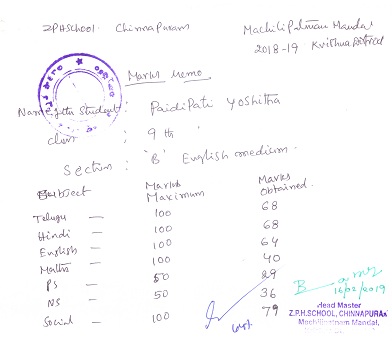 Z.P.H SCHOOL. Chinnapuram
Machilipatnam Mandal
2018-19 Krishna District
Marks Memo
Name of the student : Paidipati Yoshitha
class : 9 th
Section : 'B' English medium.
Subject Marks Maximum Marks Obtained.
Telugu — 100 68
Hindi — 100 68
English — 100 64
Maths — 100 40
PS — 50 29
NS — 50 36
Social — 100 79
16/02/2019
Head Master
Z.P.H.SCHOOL, CHINNAPURAM
Machilipatnam Mandal,